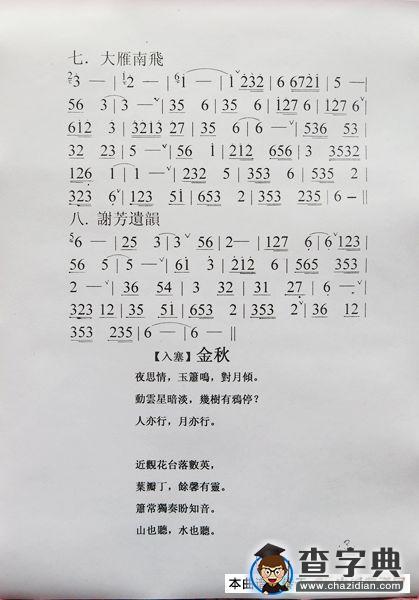 七．大雁南飛
3 — | 2 — | 1 — | 1 — | 232 | 6 6721 | 5 — |
56 3 | 3 — | 35 6 | 35 6 | 127 6 | 127 6 |
612 3 | 3213 27 | 35 6 | 6 — | 536 53 |
32 23 | 5 — | 56 51 | 2312 656 | 3 3532 |
126 1 | 1 — | 51 653 | 2 353 | 6 535 2 |
323 6 | 123 51 | 653 2 | 353 235 | 6 — ‖
八．謝芳遺韻
6 — | 25 3 | 3 56 | 2 — | 127 6 | 6 123 |
56 5 | 5 — | 61 3 | 212 6 | 565 353 |
2 — | 36 54 | 3 32 | 31 27 | 6 — |
323 12 | 35 51 | 653 2 | 353 2 | 36 12 |
353 235 | 6 — | 6 — ‖
【入塞】金秋
夜思情，玉簫鳴，對月傾。
動雲星暗淡，幾樹有鴉停？
人亦行，月亦行。
近觀花台落數英，
葉瓣丁，餘馨有靈。
簫常獨奏盼知音。
山也聽，水也聽。
查字典
www.chazidian.com
本曲